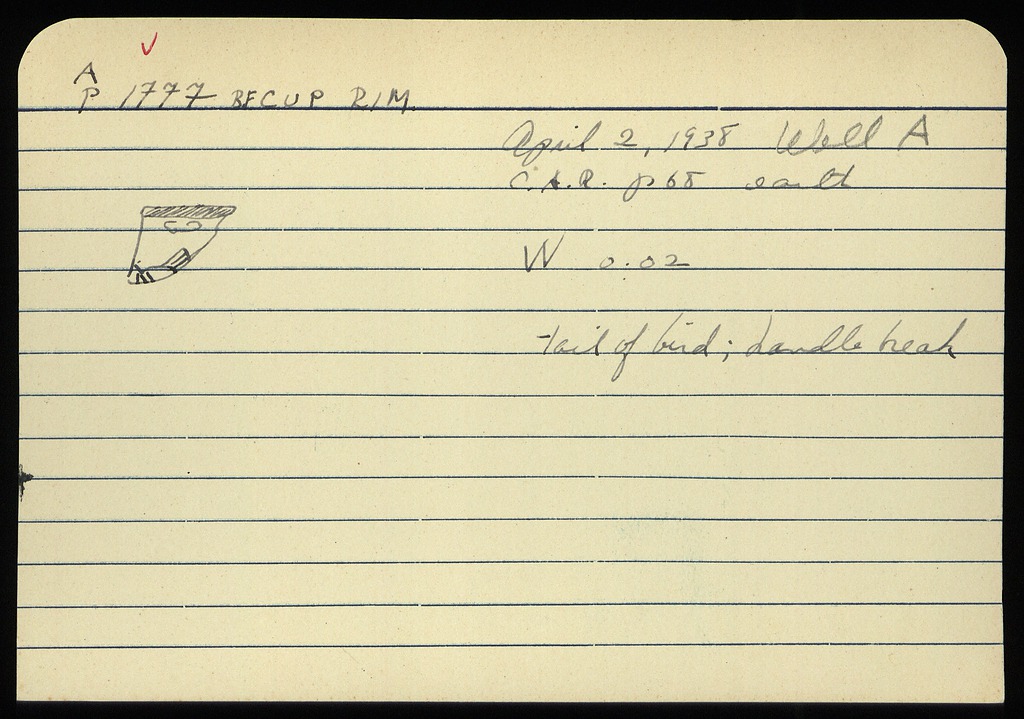 A
P 1777 BF CUP RIM
April 2, 1938 Well A
C.A.R. p 68
W 0.02
tail of bird; handle break